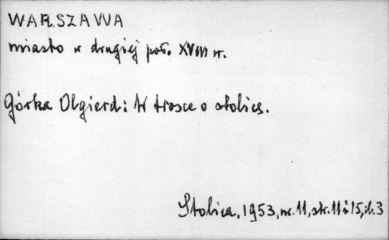 WARSZAWA
miasto w drugiej poł. XVIII w.
Górka Olgierd: W trosce o stolicę.
Stolica, 1953, nr. 11, str. 11 i 15, il. 3